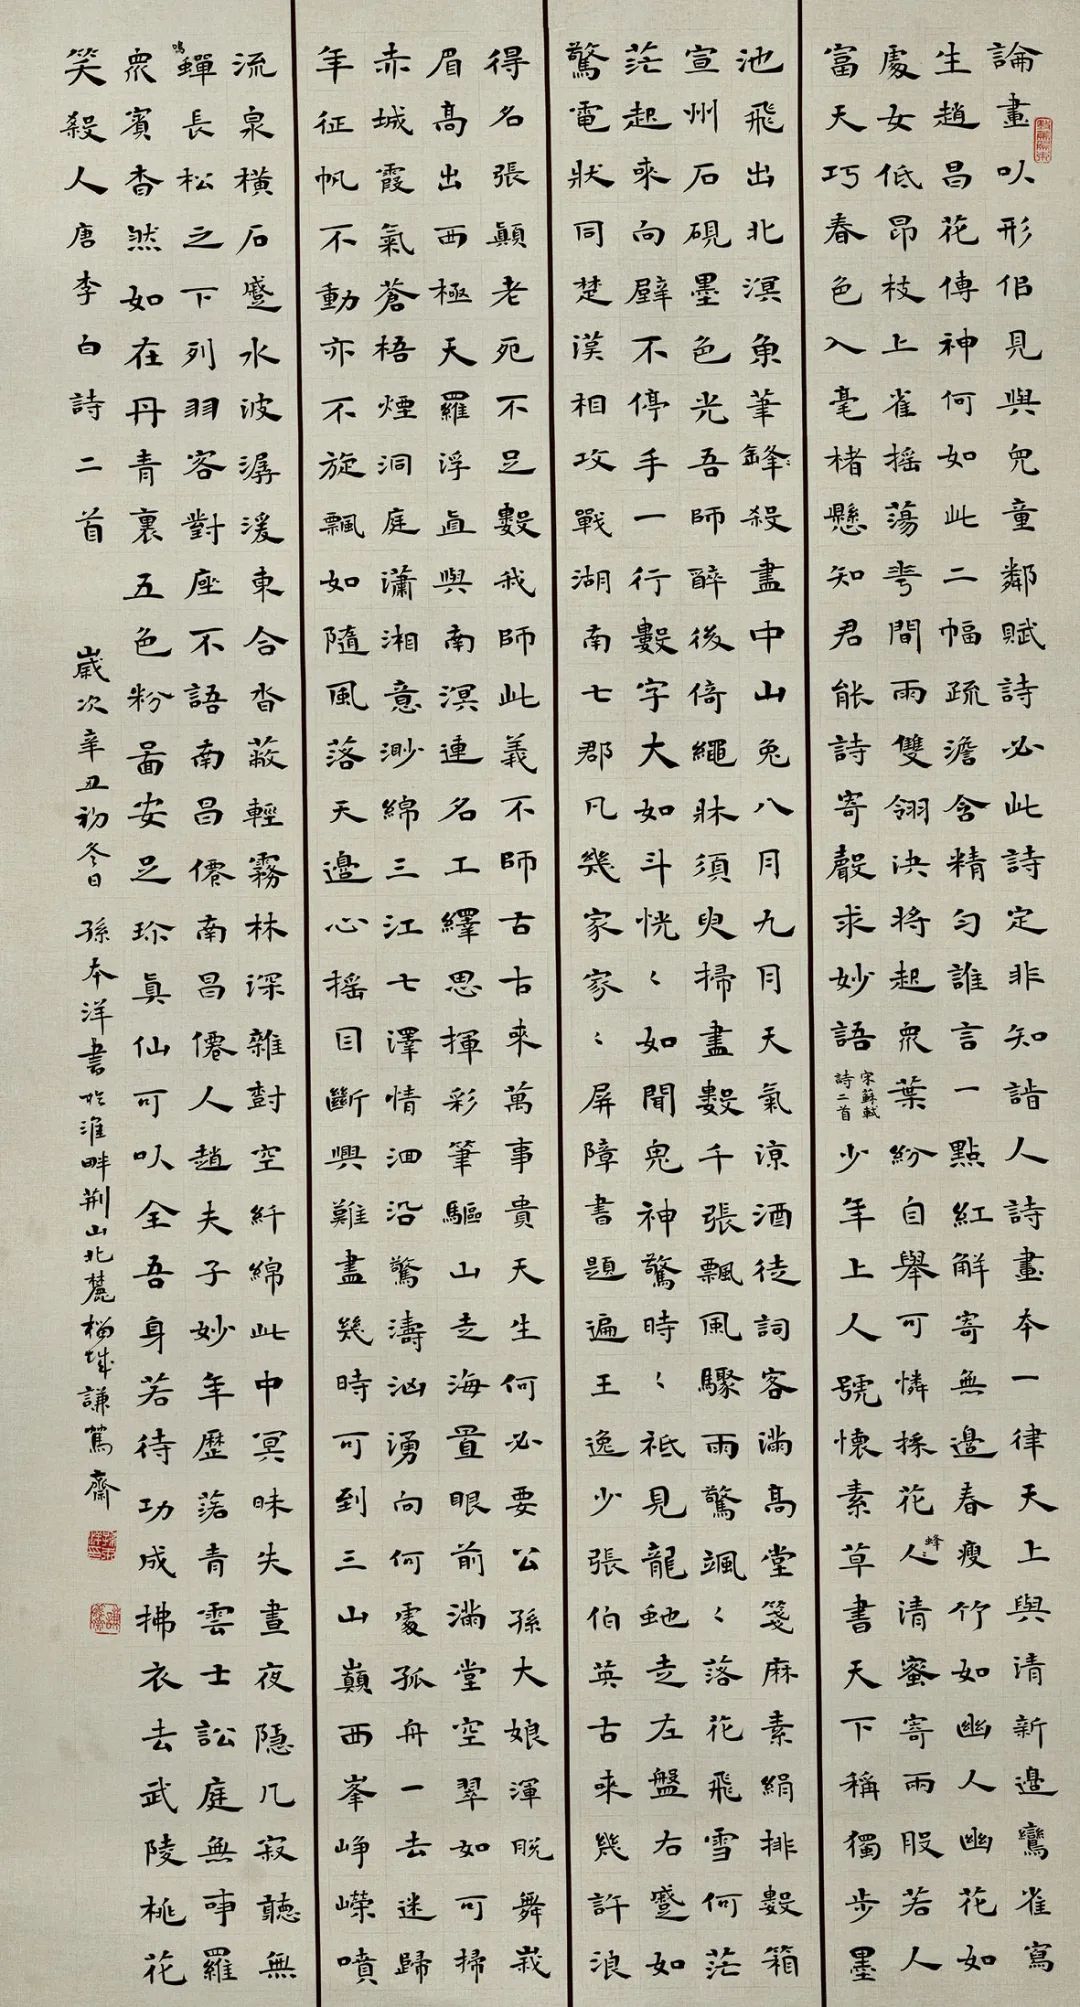 論畫以形佀見與兒童鄰賦詩必此詩定非知詣人詩畫本一律天上與清新邉鸞雀寫
生趙昌花傳神何如此二幅疏澹含精勻誰言一點紅解寄無邉春瘦竹如幽人幽花如
處女低昂枝上雀搖蕩花間雨雙翎決將起衆葉紛自舉可憐採花人清蜜寄兩股若人
蜂
富天巧春色入毫楮懸知君能詩寄聲求妙語
宋蘇軾
詩二首
少年上人號懷素草書天下稱獨步墨
池飛出北溟魚筆鋒殺盡中山兔八月九月天氣涼酒徒詞客滿高堂箋麻素絹排數箱
宣州石硯墨色光吾師醉後倚繩牀須臾掃盡數千張飄風驟雨驚颯〻落花飛雪何茫
茫起來向壁不停手一行數字大如斗怳〻如聞鬼神驚時〻祗見龍虵走左盤右蹙如
驚電狀同楚漢相攻戰湖南七郡凡幾家家〻屏障書題遍王逸少張伯英古來幾許浪
得名張顛老死不足數我師此義不師古古來萬事貴天生何必要公孫大娘渾脫舞峩
眉高出西極天羅浮直與南溟連名工繹思揮彩筆驅山走海置眼前滿堂空翠如可掃
赤城霞氣蒼梧煙洞庭瀟湘意渺綿三江七澤情洄沿驚濤洶湧向何處孤舟一去迷歸
年征帆不動亦不旋飄如隨風落天邉心搖目斷興難盡幾時可到三山巔西峯崢嶸噴
流泉橫石蹙水波潺湲東合沓蔽輕霧林深雜樹空紆綿此中冥昧失晝夜隱几寂聽無
鳴
蟬長松之下列羽客對座不語南昌僊南昌僊人趙夫子妙年歷落青雲士訟庭無事羅
衆賓杳然如在丹青裏五色粉圖安足珍真仙可以全吾身若待功成拂衣去武陵桃花
笑殺人唐李白詩二首
歲次辛丑初冬日孫本洋書於淮畔荊山北麓榴城謙篤齋